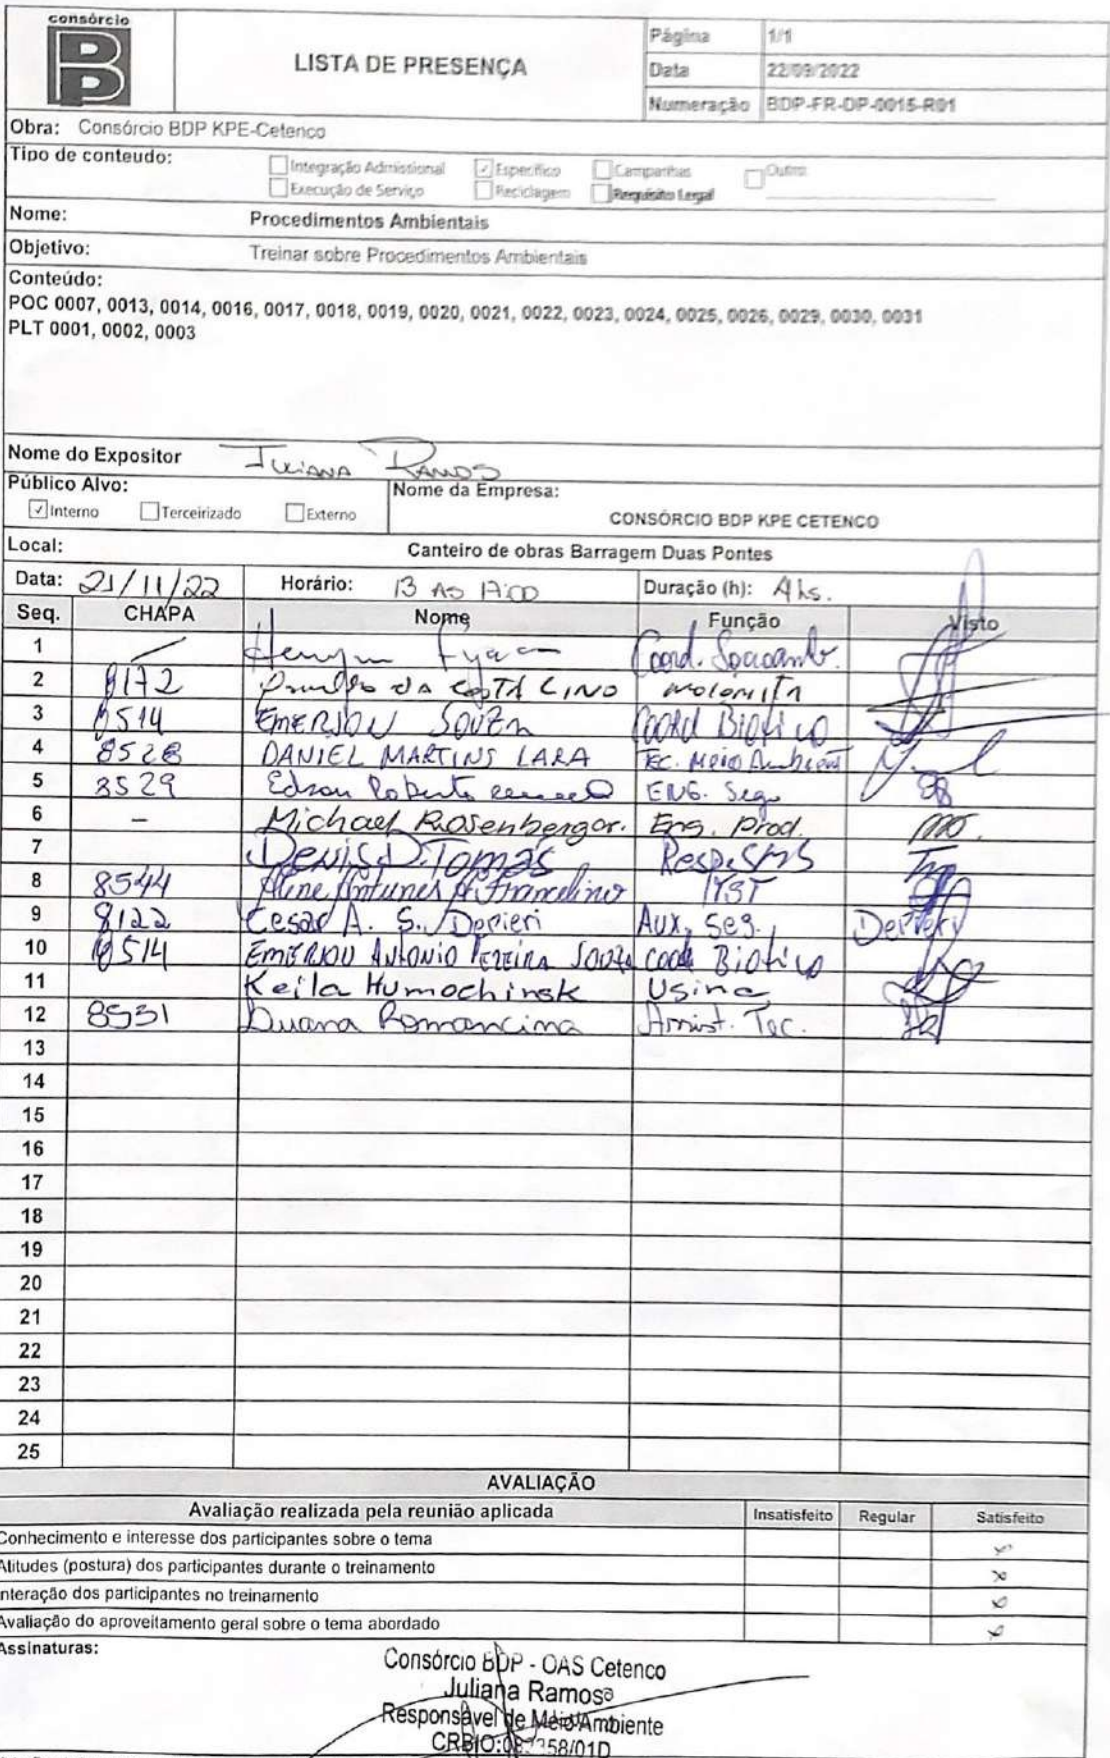 consórcio
BP
LISTA DE PRESENÇA
Página 1/1
Data 22/09/2022
Numeração BDP-FR-DP-0015-R01
Obra: Consórcio BDP KPE-Cetenco
Tipo de conteudo:
Integração Admissional Específico Campanhas Outros
Execução de Serviço Reciclagem Requisito Legal
Nome: Procedimentos Ambientais
Objetivo: Treinar sobre Procedimentos Ambientais
Conteúdo:
POC 0007, 0013, 0014, 0016, 0017, 0018, 0019, 0020, 0021, 0022, 0023, 0024, 0025, 0026, 0029, 0030, 0031
PLT 0001, 0002, 0003
Nome do Expositor JULIANA RAMOS
Público Alvo: Nome da Empresa:
Interno Terceirizado Externo CONSÓRCIO BDP KPE CETENCO
Local: Canteiro de obras Barragem Duas Pontes
Data: 21/11/22 Horário: 13 AS 17:00 Duração (h): 4hs.
Seq. CHAPA Nome Função Visto
1 Coord. Socioamb.
2 8172 DA COSTA LINO motorista
3 8514 EMERSON SOUZA COORD BIOTICO
4 8528 DANIEL MARTINS LARA TEC. MEIO Ambiente
5 8529 Edson Roberto ENG. Seg
6 - Michael Rosenberger. Eng. Prod.
7 DENIS D. TOMAS Resp. SMS
8 8544 Aline Antunes A. Francelino TST
9 8122 Cesar A. S. Derieri AUX. Seg.
10 8514 EMERSON ANTONIO PEREIRA SOUZA COOR BIOTICO
11 Keila Humochinsk Usina
12 8531 Luana Romancina Assist. Tec.
13
14
15
16
17
18
19
20
21
22
23
24
25
AVALIAÇÃO
Avaliação realizada pela reunião aplicada Insatisfeito Regular Satisfeito
Conhecimento e interesse dos participantes sobre o tema x
Atitudes (postura) dos participantes durante o treinamento x
Interação dos participantes no treinamento x
Avaliação do aproveitamento geral sobre o tema abordado x
Assinaturas:
Consórcio BDP - OAS Cetenco
Juliana Ramos
Responsável de Meio Ambiente